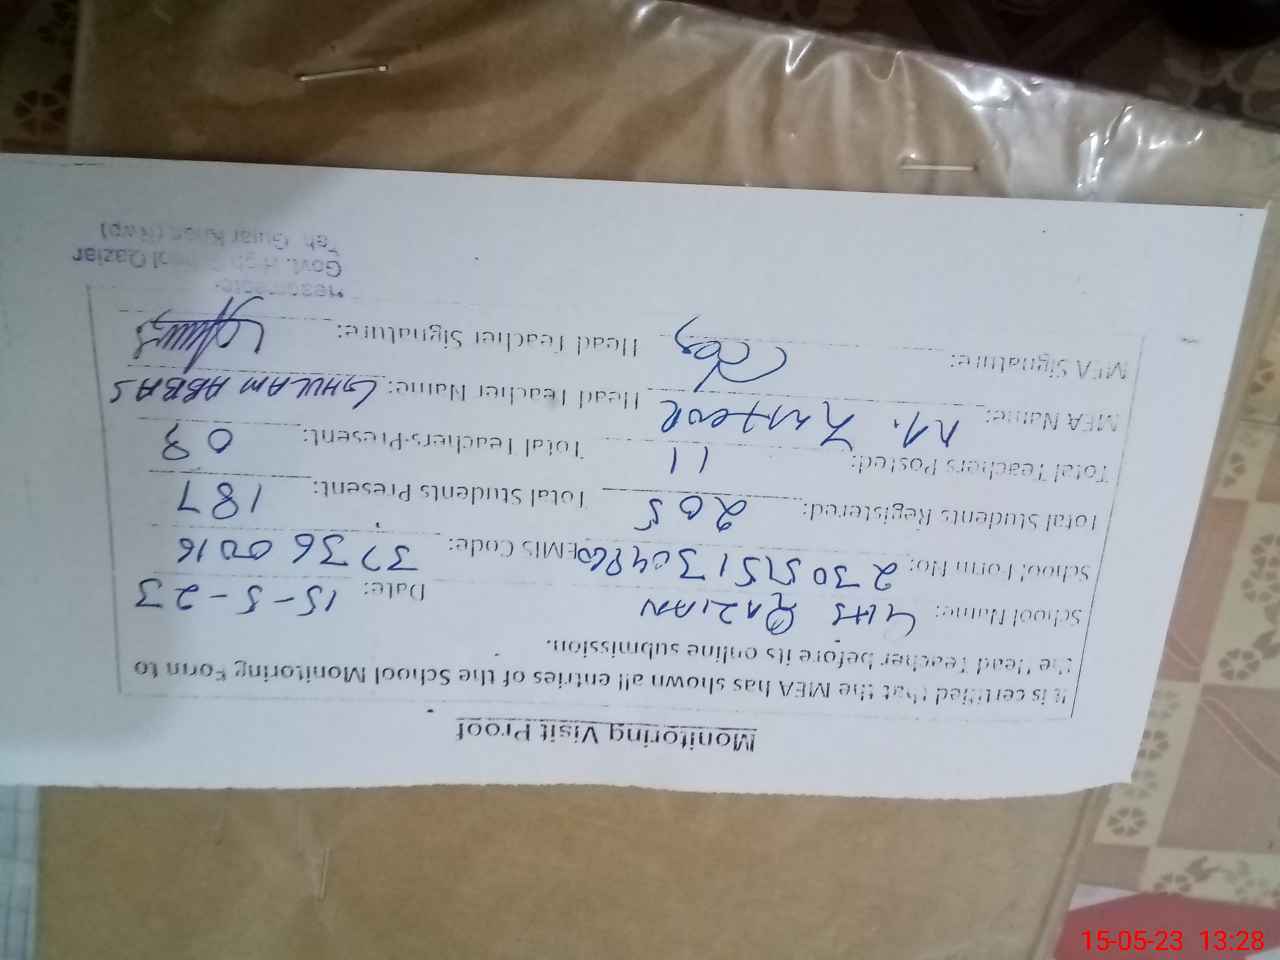 Monitoring Visit Proof
It is certified that the MEA has shown all entries of the School Monitoring Form to
the Head Teacher before its online submission.
School Name: GHS QAZIAN Date: 15-5-23
School Form No: EMIS Code: 37360016
Total Students Registered: 205 Total Students Present: 187
Total Teachers Posted: 11 Total Teachers Present: 08
MEA Name: M. Head Teacher Name: GHULAM ABBAS
MEA Signature: Head Teacher Signature:
Govt. High School Qazian
Teh. Gujar Khan (Rwp)
15-05-23 13:28